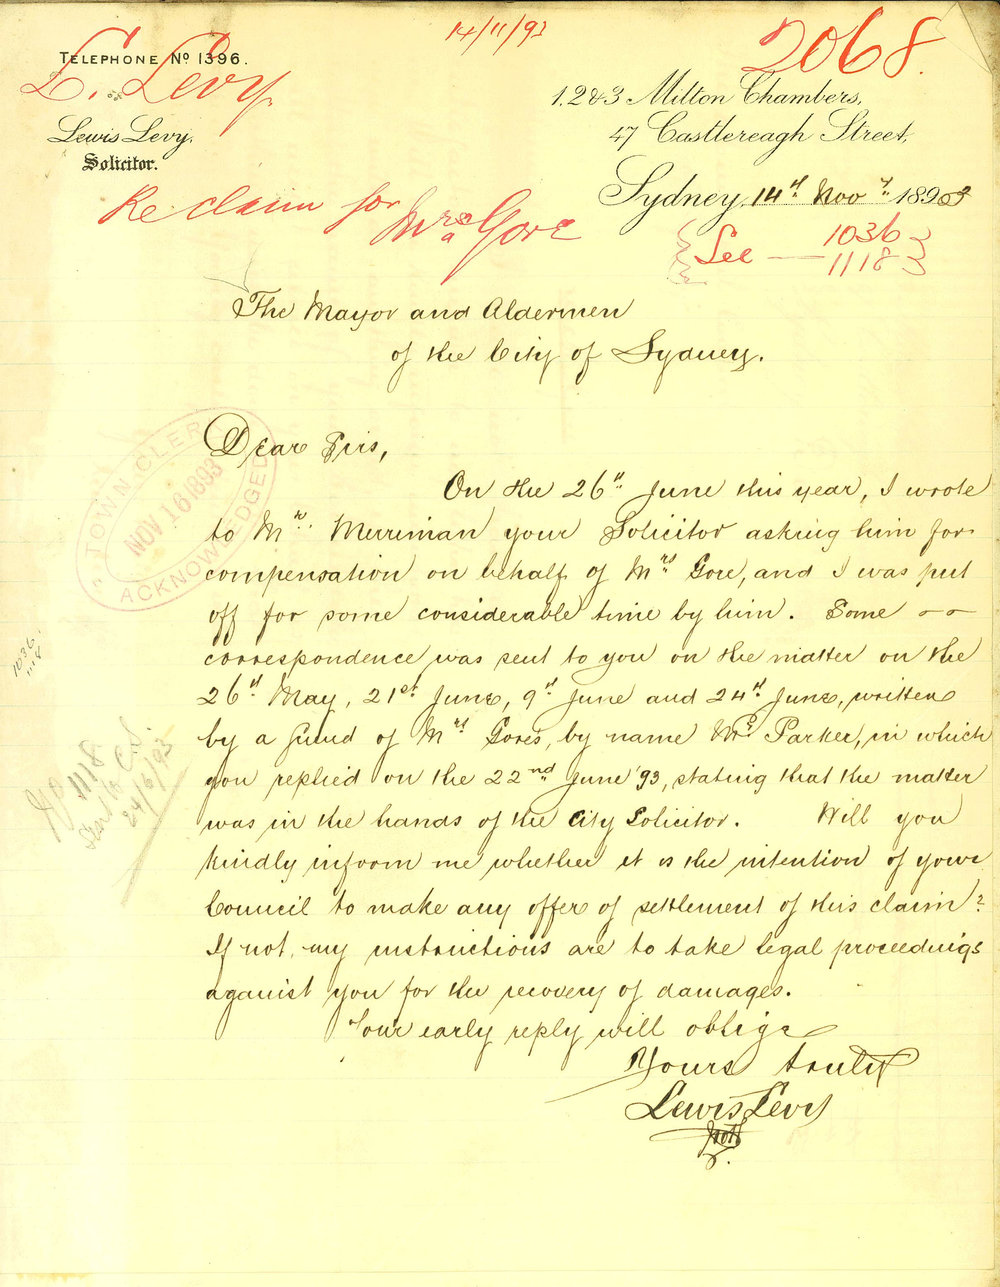 14/11/93
2068.
TELEPHONE No 1396.
L. Levy
1, 2 & 3 Milton Chambers,
47 Castlereagh Street,
Lewis Levy,
Solicitor.
Sydney, 14th Novr 1893
Re claim for
Mrs Gore
See — 1036
1118
The Mayor and Aldermen
of the City of Sydney.
TOWN CLERK
NOV 16 1893
ACKNOWLEDGED
Dear Sirs,
On the 26th June this year, I wrote
to Mr. Merriman your Solicitor asking him for
compensation on behalf of Mrs Gore, and I was put
off for some considerable time by him. Some
correspondence was sent to you on the matter on the
26th May, 21st June, 9th June and 24th June, written
by a friend of Mrs Gores, by name Parker, in which
you replied on the 22nd June '93, stating that the matter
was in the hands of the City Solicitor. Will you
kindly inform me whether it is the intention of your
Council to make any offer of settlement of this claim?
If not, my instructions are to take legal proceedings
against you for the recovery of damages.
Your early reply will oblige
Yours truly
Lewis Levy
1036
1118
1118
Sent to C.S.
24/6/93